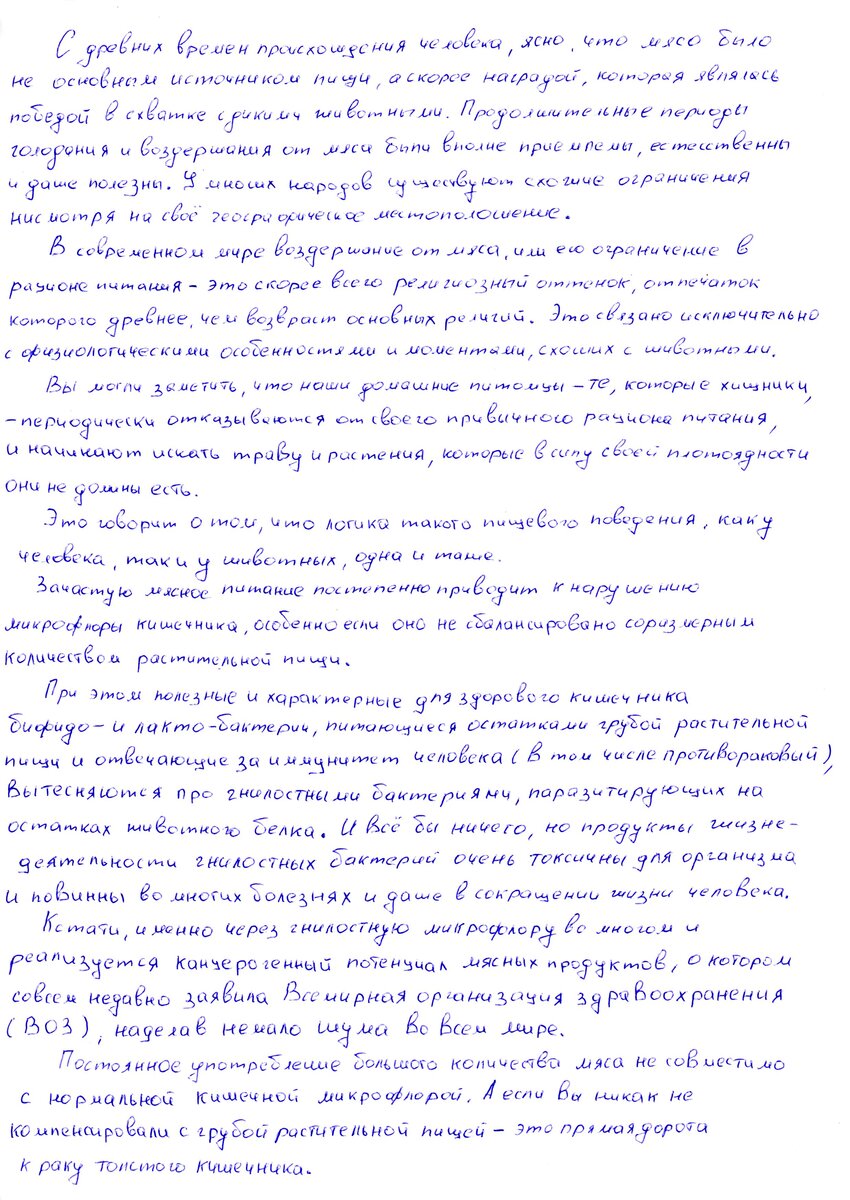 С древних времен происхождения человека, ясно, что мясо было
не основным источником пищи, а скорее наградой, которая являлась
победой в схватке с дикими животными. Продолжительные периоды
голодания и воздержания от мяса были вполне приемлемы, естественны
и даже полезны. У многих народов существуют схожие ограничения
нисмотря на своё географическое местоположение.
В современном мире воздержание от мяса, или его ограничение в
рационе питания - это скорее всего религиозный оттенок, отпечаток
которого древнее, чем возвраст основных религий. Это связано исключительно
с физиологическими особенностями и моментами, схожих с животными.
Вы могли заметить, что наши домашние питомцы - те, которые хищники,
- периодически отказываются от своего привычного рациона питания,
и начинают искать траву и растения, которые в силу своей плотоядности
они не должны есть.
Это говорит о том, что логика такого пищевого поведения, как у
человека, так и у животных, одна и таже.
Зачастую мясное питание постепенно приводит к нарушению
микрофлоры кишечника, особенно если оно не сбалансировано соризмерным
количеством растительной пищи.
При этом полезные и характерные для здорового кишечника
бифидо- и лакто-бактерии, питающиеся остатками грубой растительной
пищи и отвечающие за иммунитет человека (в том числе противораковый),
вытесняются про гнилостными бактериями, паразитирующих на
остатках животного белка. И всё бы ничего, но продукты жизне-
деятельности гнилостных бактерий очень токсичны для организма
и повинны во многих болезнях и даже в сокращении жизни человека.
Кстати, именно через гнилостную микрофлору во многом и
реализуется канцерогенный потенциал мясных продуктов, о котором
совсем недавно заявила Всемирная организация здравоохранения
(ВОЗ), наделав немало шума во всем мире.
Постоянное употребление большого количества мяса не совместимо
с нормальной кишечной микрофлорой. А если вы никак не
компенсировали с грубой растительной пищей - это прямая дорога
к раку толстого кишечника.